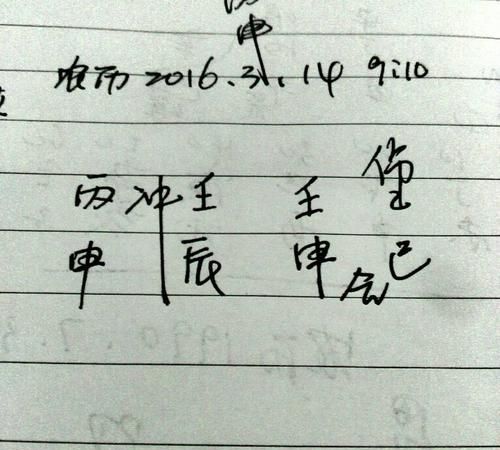 申
农历 2016.3.14 9:10
丙 冲 壬 壬
申 辰 申 合 巳